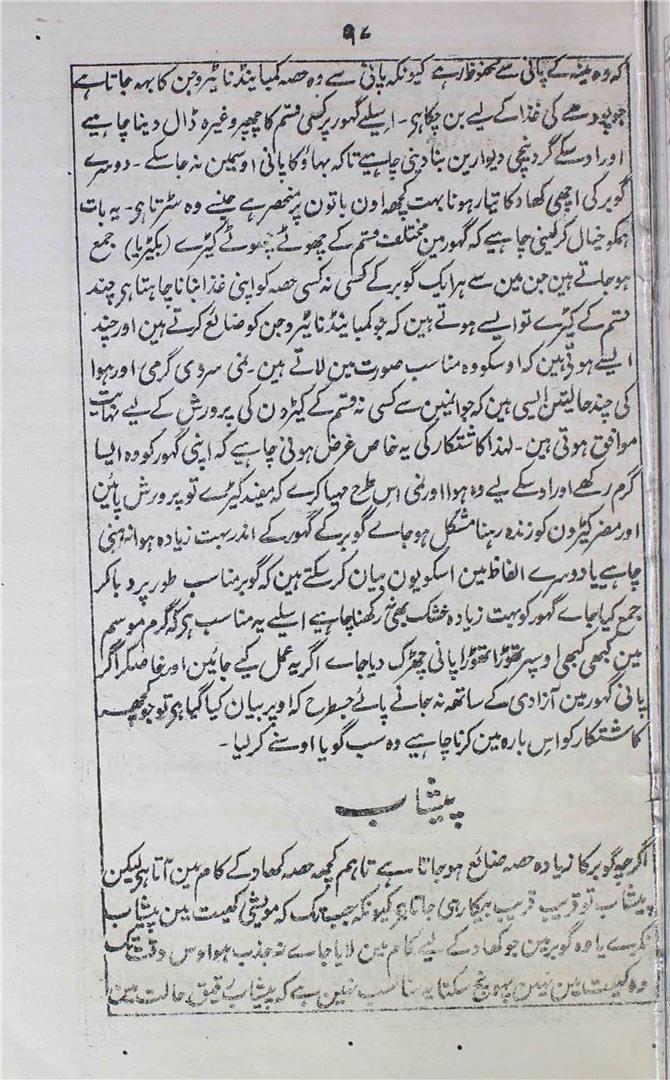 ۹۸
کہ وہ مینہ کے پانی سے محفوظ رہے کیونکہ پانی سے وہ حصہ کمبائنڈ نائیٹروجن کا بہہ جاتا ہے
جو پودھے کی غذا کے لیے بن چکا ہی۔ اسلیے گھور پر کسی قسم کا چھپر وغیرہ ڈال دینا چاہیے
اور اوسکے گرد نیچی دیوارین بنا دینی چاہیے تاکہ بہاؤ کا پانی اوسمین نہ جا سکے۔ دوسرے
گوبر کی اچھی کھاد کا تیار ہونا بہت کچھ اون باتون پر منحصر ہے جنسے وہ سڑتا ہی۔ یہ بات
ہمکو خیال کر لینی چاہیے کہ گھور مین مختلف قسم کے چھوٹے چھوٹے کیڑے (بکٹیریا) جمع
ہو جاتے ہین جن مین سے ہر ایک گوبر کے کسی نہ کسی حصہ کو اپنی غذا بنانا چاہتا ہی چند
قسم کے کیڑے تو ایسے ہوتے ہین کہ جو کمبائنڈ نائیٹروجن کو ضائع کرتے ہین اور چند
ایسے ہوتے ہین کہ اوسکو وہ مناسب صورت مین لاتے ہین۔ نمی سردی گرمی اور ہوا
کی چند حالتین ایسی ہین کہ جو انمین سے کسی نہ قسم کے کیڑون کی پرورش کے لیے نہایت
موافق ہوتی ہین۔ لہذا کاشتکار کی یہ خاص غرض ہونی چاہیے کہ اپنی گھور کو وہ ایسا
گرم رکھے اور اوسکے لیے وہ ہوا اور نمی اس طرح مہیا کرے کہ مفید کیڑے تو پرورش پائین
اور مضر کیڑون کو زندہ رہنا مشکل ہو جائے گوبر کے گھور کے اندر بہت زیادہ ہوا نہ ہنی
چاہیے یا دوسرے الفاظ مین اسکو یون بیان کر سکتے ہین کہ گوبر مناسب طور پر دبا کر
جمع کیا جاے گھور کو بہت زیادہ خشک بھی نہ رکھنا چاہیے اسلیے یہ مناسب ہی کہ گرم موسم
مین کبھی کبھی اوسپر تھوڑا تھوڑا پانی چھڑک دیا جاے اگر یہ عمل کیے جائین اور خاصکر اگر
پانی گھور مین آزادی کے ساتھ نہ جانے پائے جسطرح کہ اوپر بیان کیا گیا ہی تو جو کچھ
کاشتکار کو اس بارہ مین کرنا چاہیے وہ سب گویا اوسنے کر لیا۔
پیشاب
اگرچہ گوبر کا زیادہ حصہ ضائع ہو جاتا ہے تاہم کچھ حصہ کھاد کے کام مین آتا ہی لیکن
پیشاب تو قریب قریب بیکار ہی جاتا ہی کیونکہ جب تک کہ مویشی کھیت مین پیشاب
نکرے یا وہ گوبر مین جو کھاد کے لیے کام مین لایا جاے نہ جذب ہو اوس وقت تک
وہ کھیت مین نہین پہونچ سکتا یہ مناسب نہین ہے کہ پیشاب رقیق حالت مین